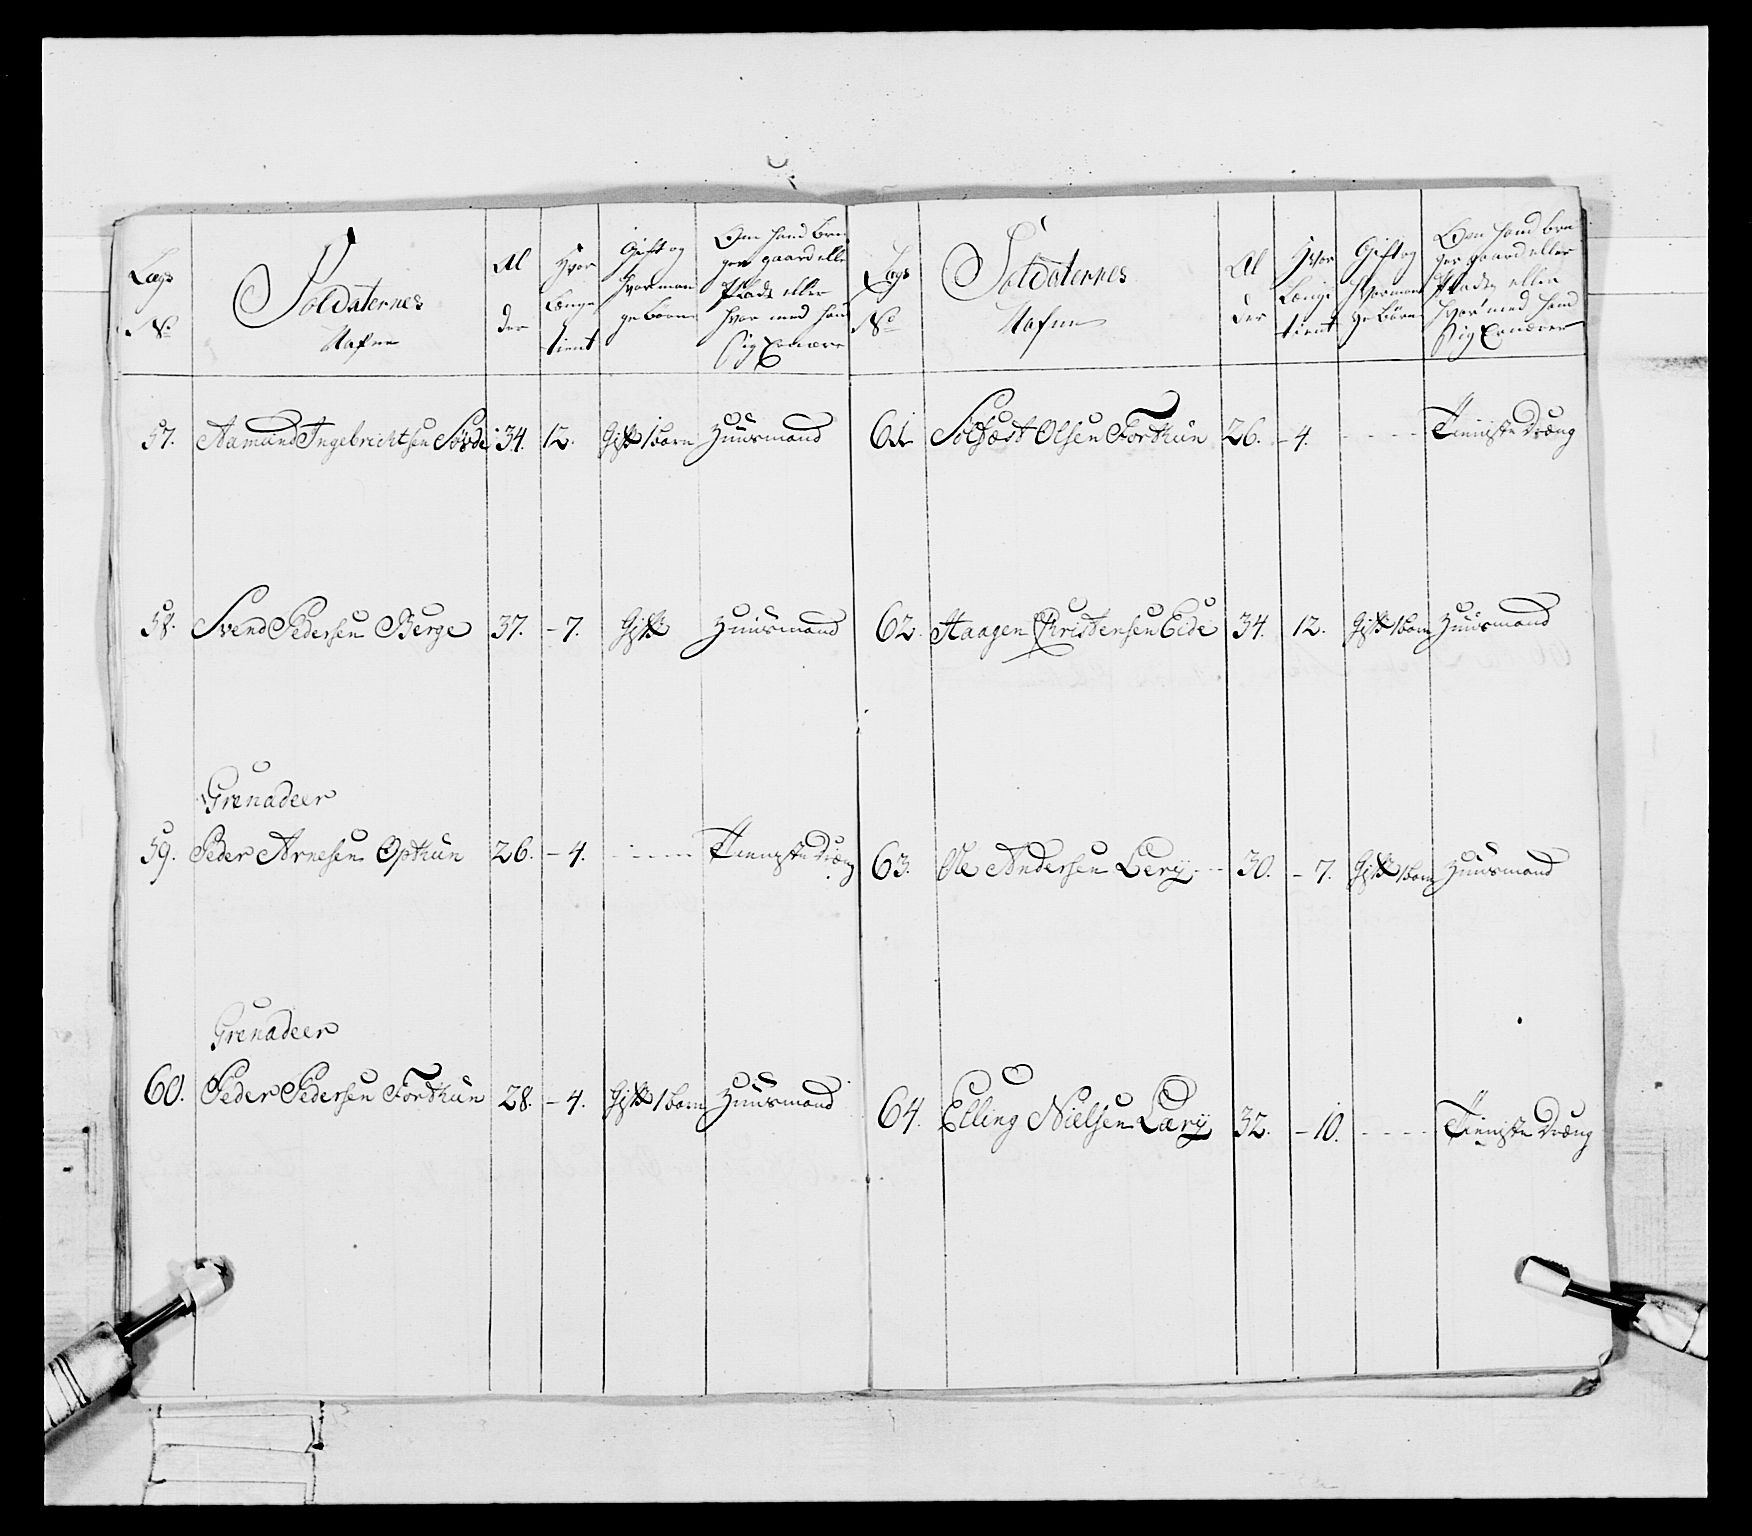 Lægs
No
Soldaternes
Nafne
Al
der
Hvor
Længe
tient
Gift og
hvor man
ge börn
Om hand bru
ger gaard eller
Plads eller
hvor med hand
sig Ernærer
57. Aamund Ingebrichtsen Sörde 34. 12. Gift 1 barn Huusmand
58. Svend Pedersen Berge 37. - 7. Gift Huusmand
Grenadeer
59. Peder Arnesen Opthun 26. - 4. Tienneste Dræng
Grenadeer
60. Peder Pedersen Forthun 28. - 4. Gift 1 barn Huusmand
Lægs
No
Soldaternes
Nafne
Al
der
Hvor
Længe
tient
Gift og
hvor man
ge Börn
Om hand bru
ger gaard eller
Pladz eller
hvor med hand
sig Ernærer
61. Solfæst Olsen Forthun 26. - 4. Tienniste Dræng
62. Haagen Christensen Eide 34. 12. Gift 1 barn Huusmand
63. Ole Andersen Lerij 30. - 7. Gift 1 barn Huusmand
64. Elling Nielsen Lærij 32. - 10. Tienniste Dræng